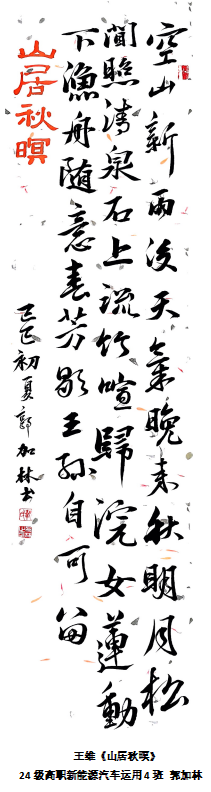 空山新雨後天氣晚来秋明月松
間照清泉石上流竹喧歸浣女蓮動
下漁舟随意春芳歇王孫自可留
山居秋暝
乙巳初夏郭加林书
王维《山居秋暝》
24级高职新能源汽车运用4班 郭加林